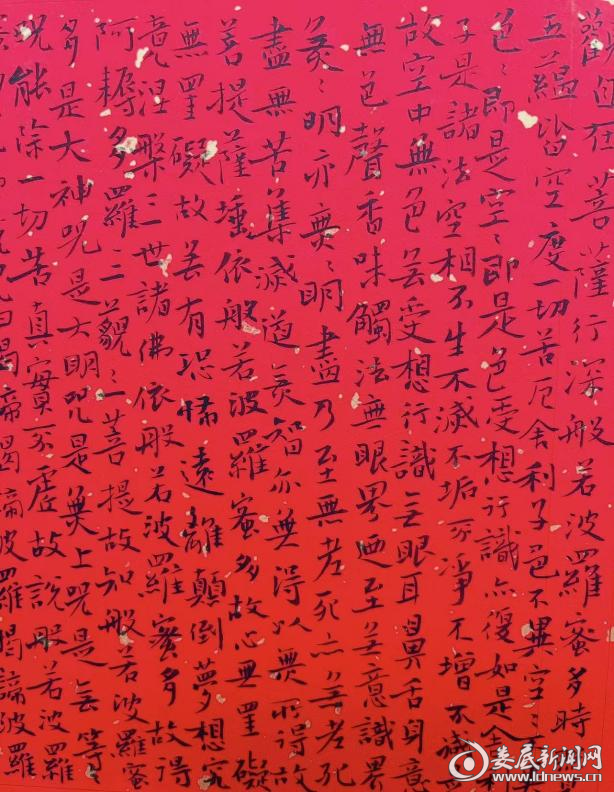 觀自在菩薩行深般若波羅蜜多時照
五蘊皆空度一切苦厄舍利子色不異空〻不異
色〻即是空〻即是色受想行識亦復如是舍利
子是諸法空相不生不滅不垢不淨不增不減是
故空中無色無受想行識無眼耳鼻舌身意
無色聲香味觸法無眼界迺至無意識界
無〻明亦無〻明盡乃至無老死亦無老死
盡無苦集滅道無智亦無得以無所得故
菩提薩埵依般若波羅蜜多故心無罣礙
無罣礙故無有恐怖遠離顛倒夢想究
竟涅槃三世諸佛依般若波羅蜜多故得
阿耨多羅三藐三菩提故知般若波羅蜜
多是大神咒是大明咒是無上咒是無等〻
咒能除一切苦真實不虛故說般若波羅
咒曰揭諦揭諦波羅揭諦波羅
娄底新闻网
www.ldnews.cn